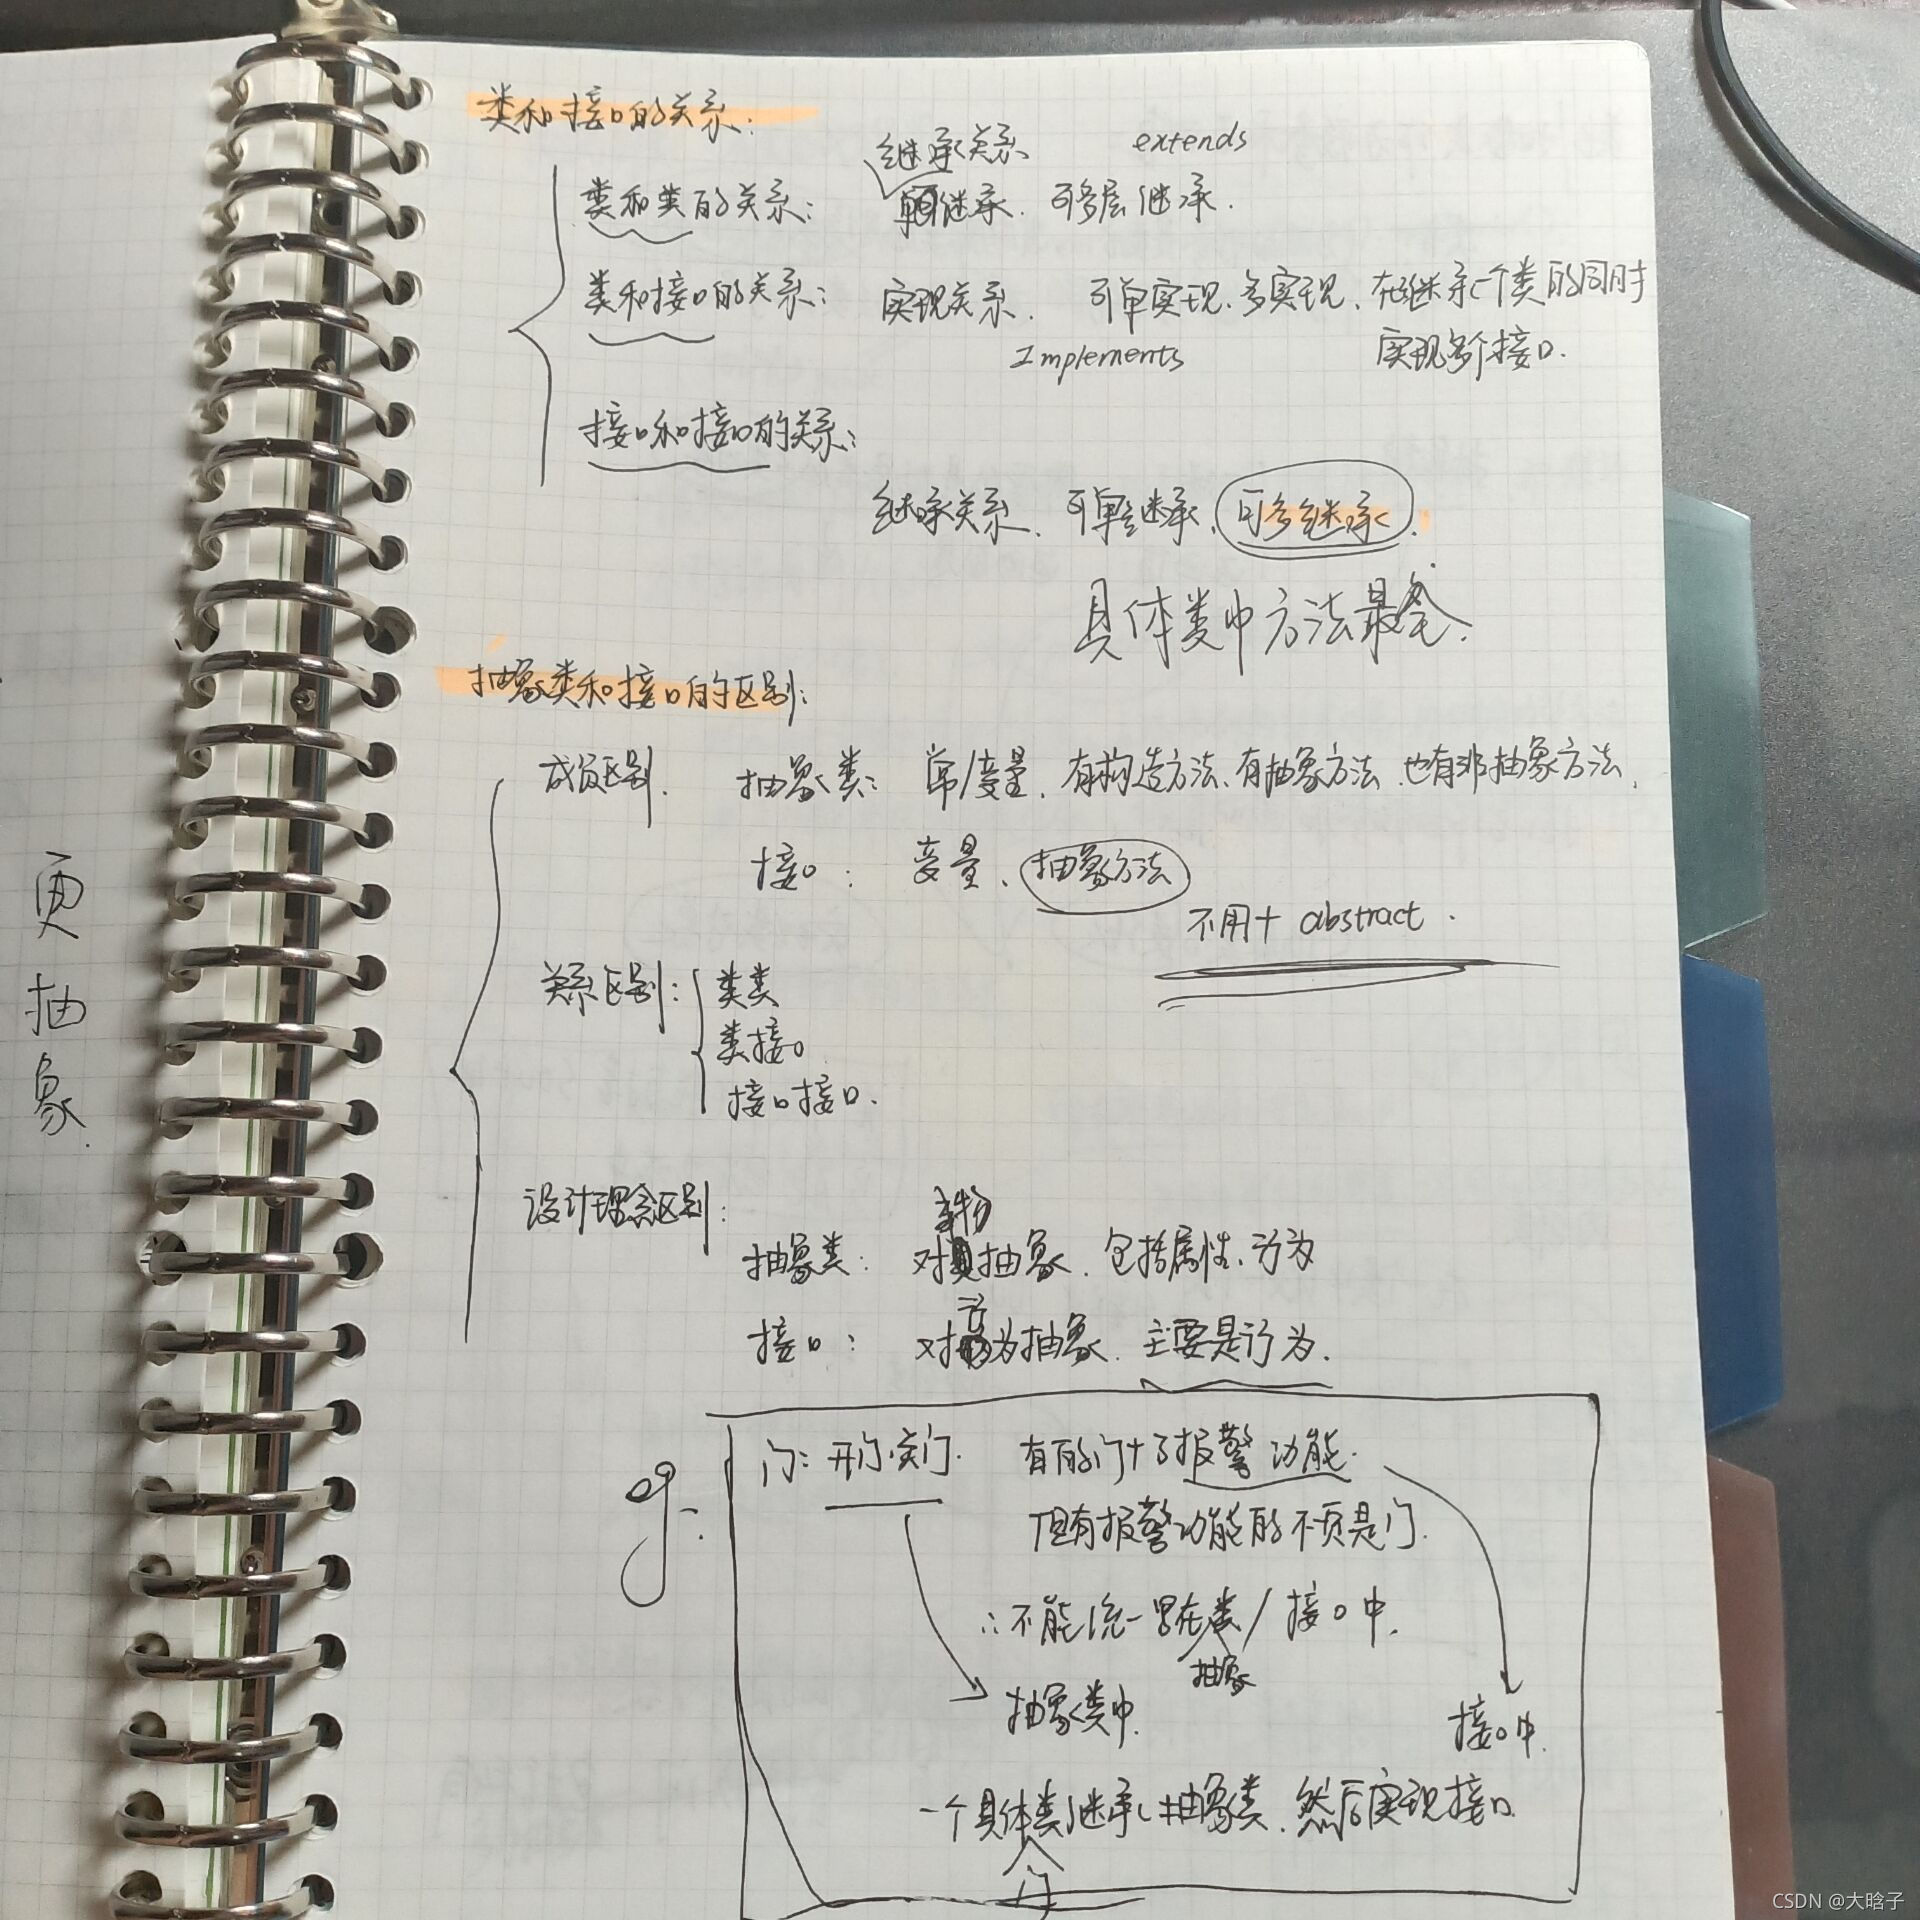 类和接口的关系:
继承关系 extends
类和类的关系: 单继承、可多层继承.
类和接口的关系: 实现关系、 可单实现、多实现、在继承一个类的同时
Implements 实现多个接口.
接口和接口的关系:
继承关系、可单继承、可多继承.
具体类中方法最全.
抽象类和接口的区别:
成员区别. 抽象类: 常/变量、有构造方法、有抽象方法、也有非抽象方法.
接口: 变量、抽象方法
不用+ abstract.
更抽象.
关系区别: 类类
类接口
接口接口.
设计理念区别:
事物
抽象类: 对抽象、包括属性、行为
行
接口: 对为抽象、主要是行为.
eg:
门: 开门、关门. 有的门+了报警功能.
但有报警功能的不页是门.
∴不能统一写在类/接口中.
抽象
抽象类中. 接口中.
一个具体类继承抽象类、然后实现接口
门
CSDN @大晗子